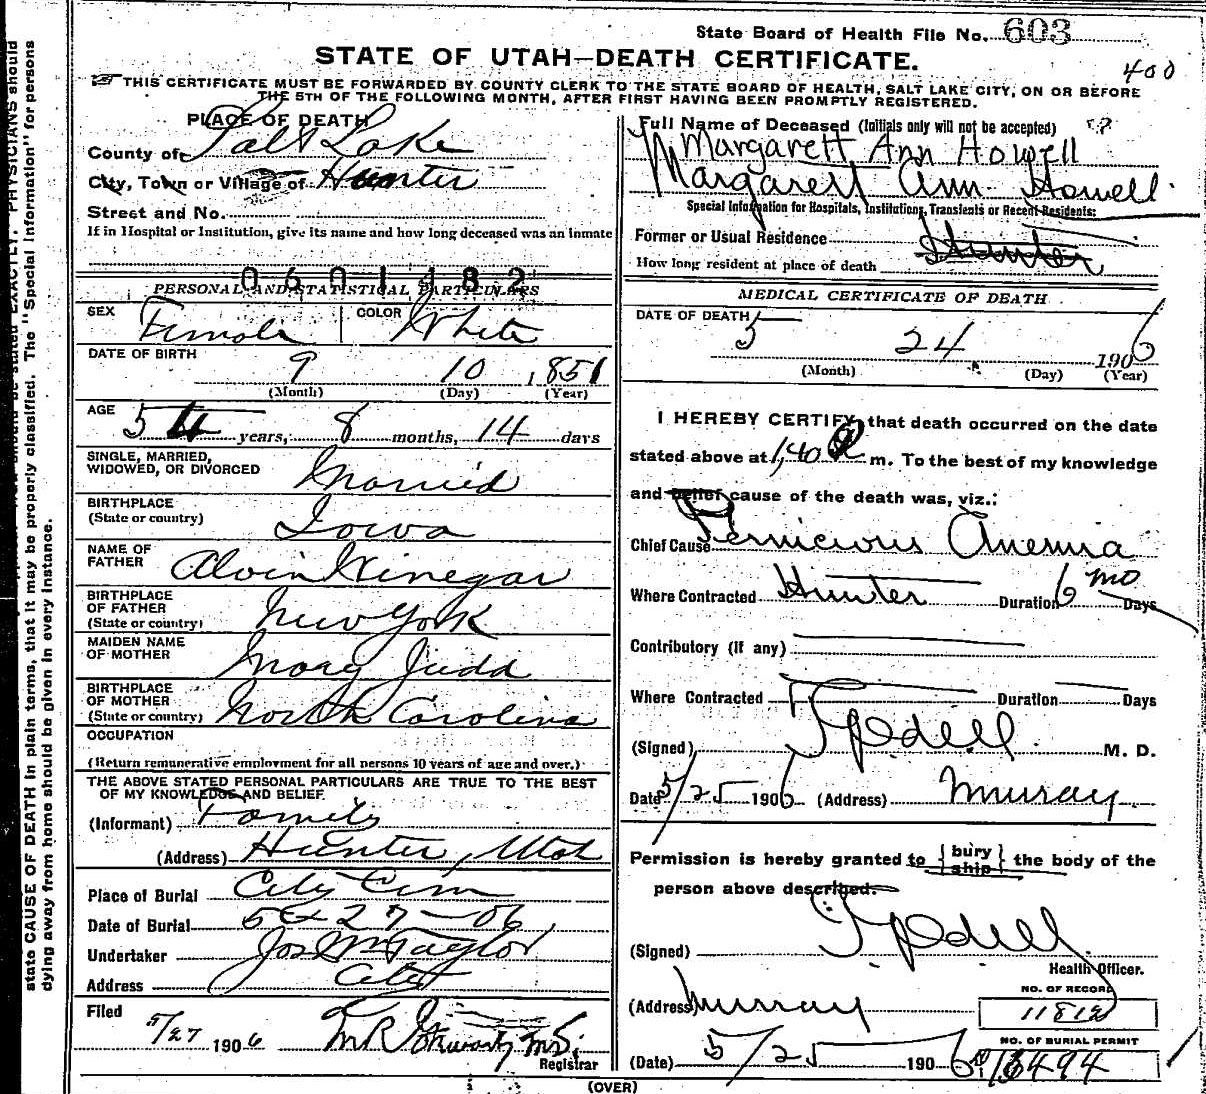 State Board of Health File No. 603
STATE OF UTAH—DEATH CERTIFICATE.
400
THIS CERTIFICATE MUST BE FORWARDED BY COUNTY CLERK TO THE STATE BOARD OF HEALTH, SALT LAKE CITY, ON OR BEFORE
THE 5TH OF THE FOLLOWING MONTH, AFTER FIRST HAVING BEEN PROMPTLY REGISTERED.
PLACE OF DEATH
County of Salt Lake
City, Town or Village of Hunter
Street and No.
If in Hospital or Institution, give its name and how long deceased was an inmate
0601482
PERSONAL AND STATISTICAL PARTICULARS
SEX Female COLOR White
DATE OF BIRTH
9 10 1851
(Month) (Day) (Year)
AGE
54 years, 8 months, 14 days
SINGLE, MARRIED,
WIDOWED, OR DIVORCED Married
BIRTHPLACE
(State or country) Iowa
NAME OF
FATHER Alvin Winegar
BIRTHPLACE
OF FATHER
(State or country) New York
MAIDEN NAME
OF MOTHER Mary Judd
BIRTHPLACE
OF MOTHER
(State or country) North Carolina
OCCUPATION
(Return remunerative employment for all persons 10 years of age and over.)
THE ABOVE STATED PERSONAL PARTICULARS ARE TRUE TO THE BEST
OF MY KNOWLEDGE AND BELIEF.
(Informant) Family
(Address) Hunter, Utah
Place of Burial City Cem
Date of Burial 5 27-06
Undertaker Jos Wm Taylor
Address City
Filed
5/27 1906 M R Stewart, M.D.
Registrar
Full Name of Deceased (Initials only will not be accepted)
Margarett Ann Howell
Margarett Ann Howell.
Special Information for Hospitals, Institutions, Transients or Recent Residents:
Former or Usual Residence Hunter
How long resident at place of death
MEDICAL CERTIFICATE OF DEATH
DATE OF DEATH
5 24 1906
(Month) (Day) (Year)
I HEREBY CERTIFY, that death occurred on the date
stated above at 1.40 a m. To the best of my knowledge
and belief cause of the death was, viz.:
Chief Cause Pernicious Anemia
Where Contracted Hunter Duration 6 mo Days
Contributory (if any)
Where Contracted Duration Days
(Signed) M. D.
Date 5/25 1906 (Address) Murray
Permission is hereby granted to { bury ship } the body of the
person above described.
(Signed)
Health Officer.
NO. OF RECORD
(Address) Murray 11812
NO. OF BURIAL PERMIT
(Date) 5/25 1906 13494
(OVER)
state CAUSE OF DEATH in plain terms, that it may be properly classified. The "Special Information" for persons
dying away from home should be given in every instance.